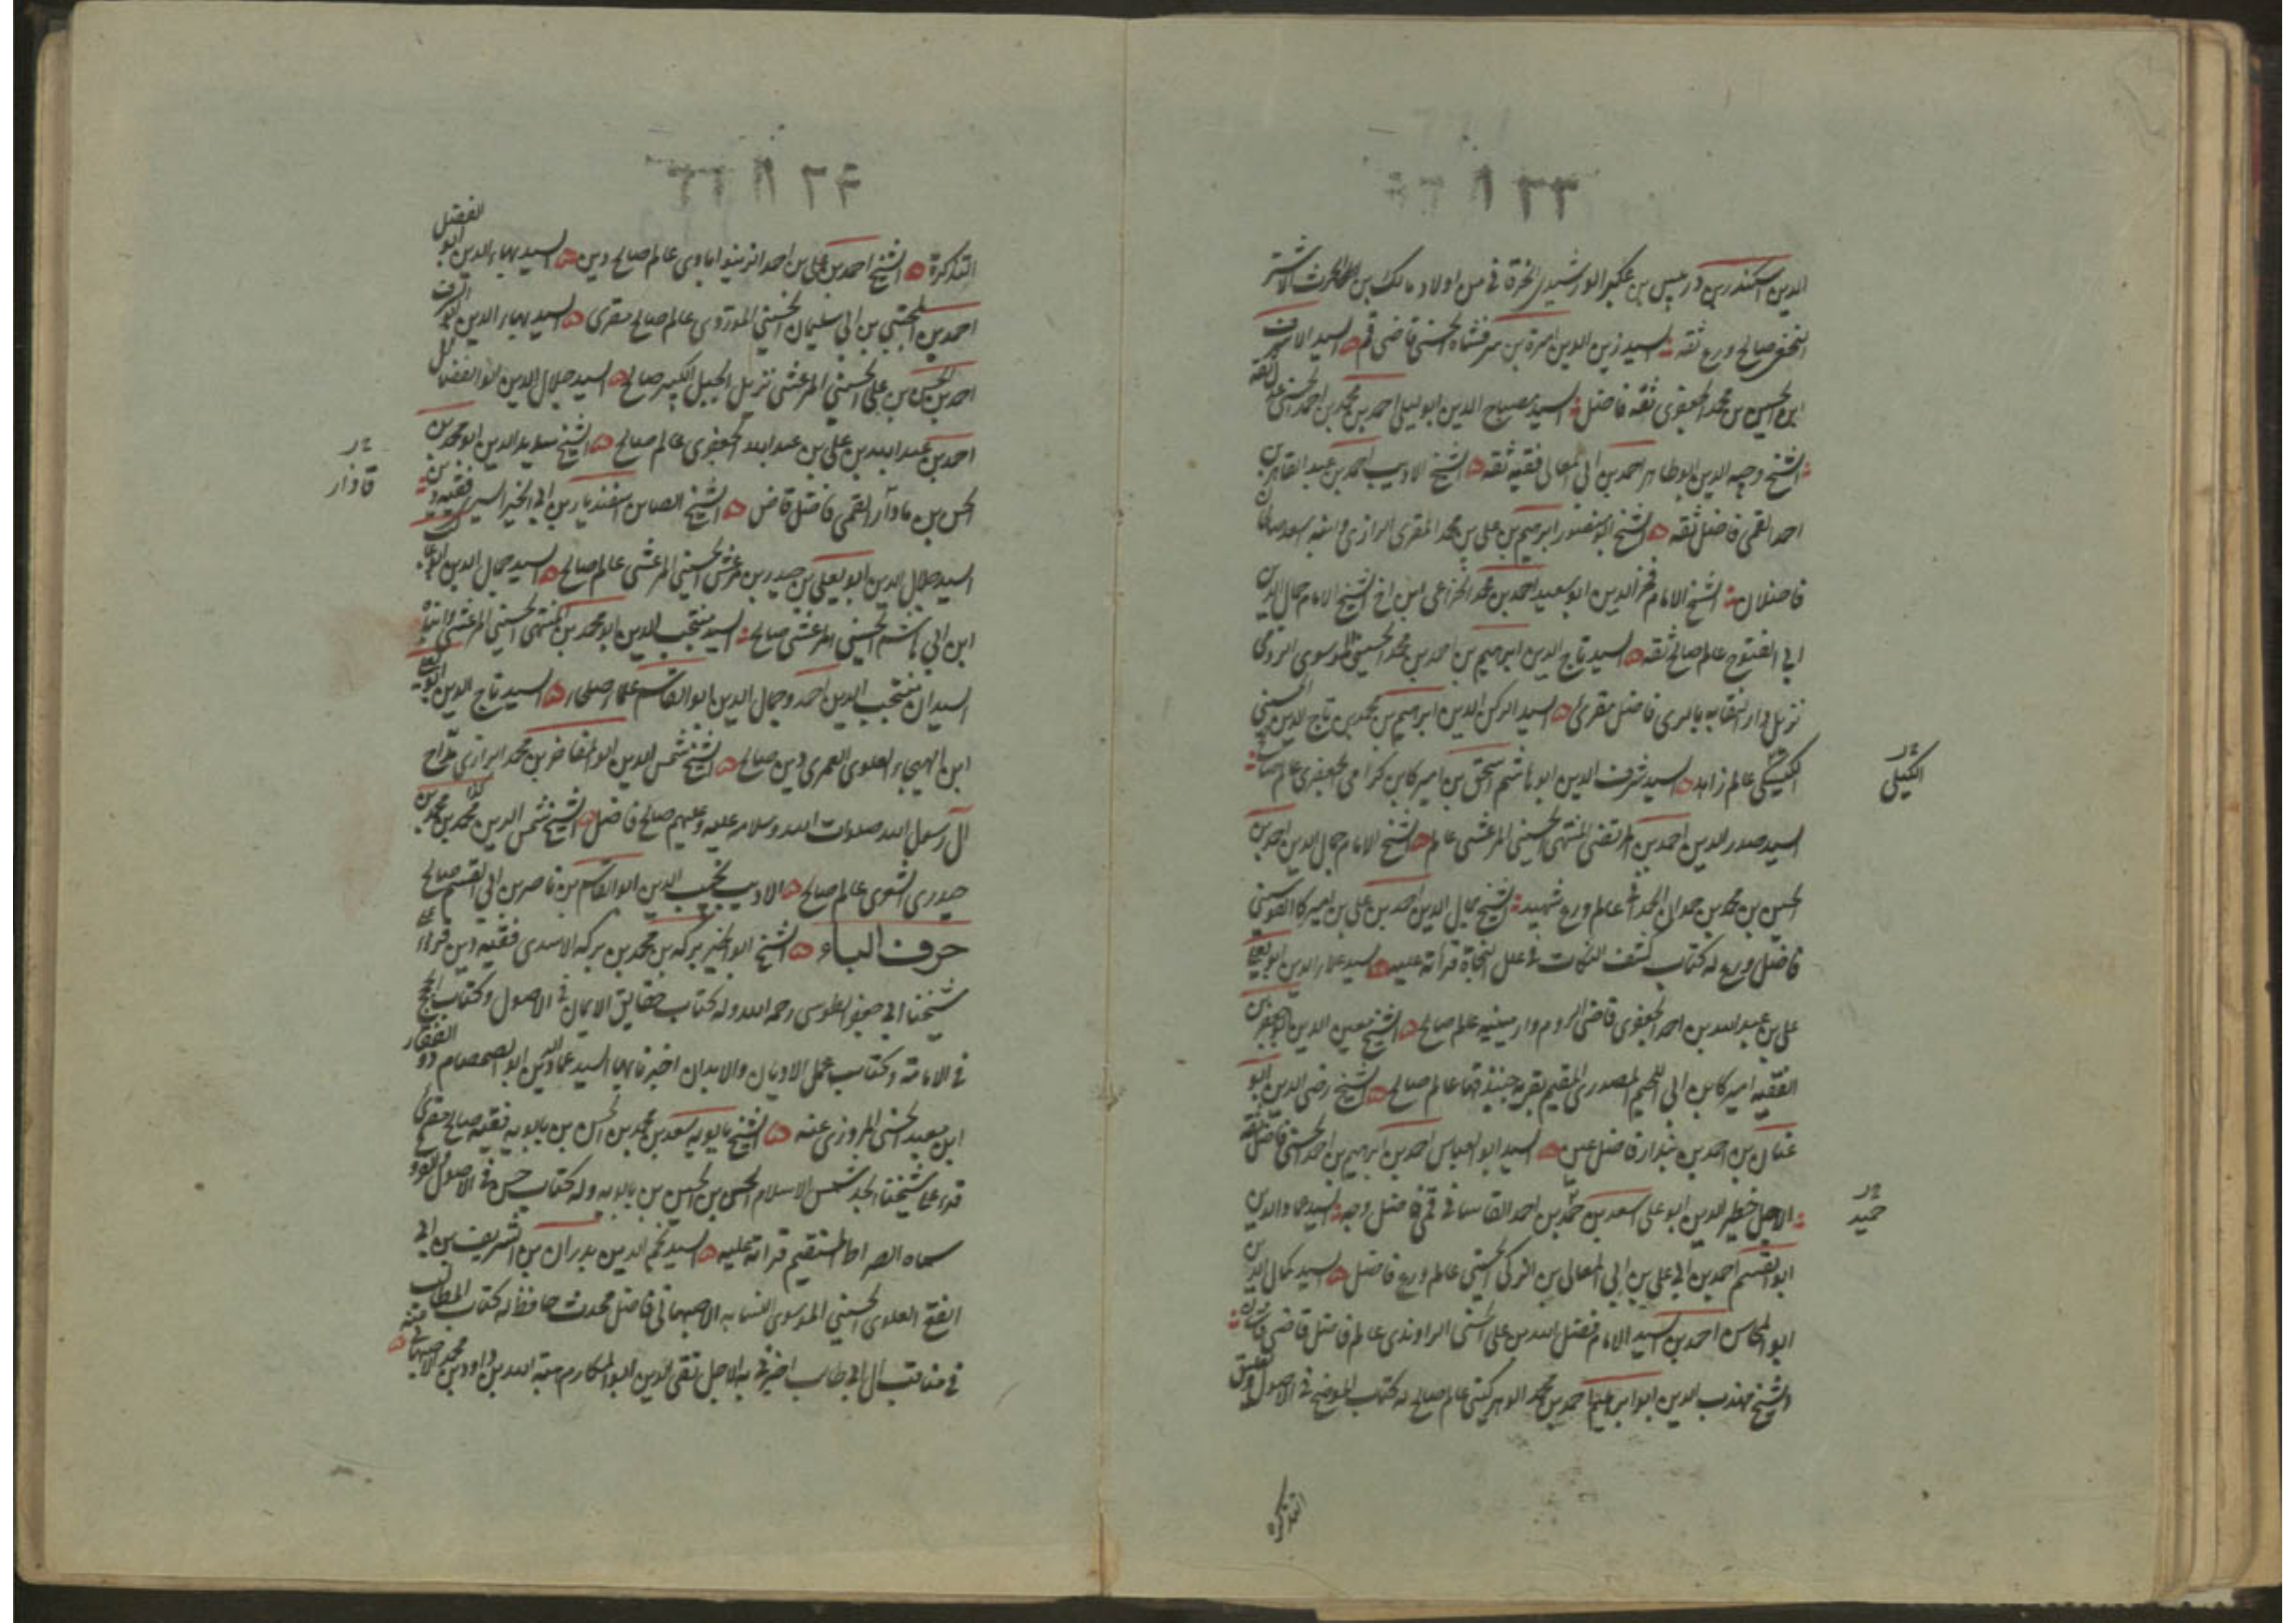 الدين اسكندر بن دربيس بن عكبر الورشيدي الخرقاني من اولاد مالك بن الحارث الاشتر
النخعي صالح ورع ثقه السيد زين الدين اميرة بن شرفشاه الحسني قاضي قم السيد الاشرف
ابن الحسين بن محمد الجعفري ثقه فاضل السيد مصباح الدين ابو ليلى احمد بن محمد بن احمد الحسني عدل ثقه
الشيخ وجيه الدين ابو طاهر احمد بن ابي المعالي فقيه ثقه الشيخ الاديب احمد بن عبد القاهر بن
احمد القمي فاضل ثقه الشيخ ابو منصور ابرهيم بن علي بن محمد المقري الرازي وابنه سعد صالحان
فاضلان الشيخ الامام فخر الدين ابو سعيد احمد بن محمد الخزاعي ابن اخ الشيخ الامام جمال الدين
ابي الفتوح عالم صالح ثقه السيد تاج الدين ابرهيم بن احمد بن محمد الحسيني الموسوي الرومي
نزيل دار النقابه بالري فاضل مقرئ السيد الركن الدين ابرهيم بن محمد بن تاج الدين الحسني
الكيسكي عالم زاهد السيد شرف الدين ابو هاشم اسحق بن اميركا بن كرامي الجعفري عالم صالح
الكيلي
السيد صدر الدين احمد بن المرتضى المنتهى الحسيني المرعشي عالم الشيخ الامام جمال الدين احمد بن
الحسين بن محمد بن حمدان الحمداني عالم ورع شهيد الشيخ جمال الدين احمد بن علي بن اميركا القوسيني
فاضل ورع له كتاب كشف النكات في علل النحاة قرأته عليه السيد علاء الدين ابو يعلي
علي بن عبد الله بن احمد الجعفري قاضي الروم وارمينيه عالم صالح الشيخ معين الدين ابو جعفر بن
الفقيه اميركا بن ابي اللحيم المصدري المقيم بقرية جنبذ قها عالم صالح الشيخ رضي الدين ابو
عنان بن احمد بن بندار فاضل عين السيد ابو العباس احمد بن ابرهيم بن احمد الحسني فاضل ثقه
الاجل خطير الدين ابو علي اسعد بن حمد بن احمد القاساني قمي فاضل وجيه السيد عماد الدين
حميد
ابو القسم احمد بن ابي علي بن ابي المعالي بن الزكي الحسني عالم ورع فاضل السيد كمال الدين
ابو المحاسن احمد بن السيد الامام فضل الله بن علي الحسني الراوندي عالم فاضل قاضي قاسان
الشيخ مهذب الدين ابو ابراهيم احمد بن محمد الوهركيني عالم صالح له كتاب الموضح في الاصول تعليق
التذكره
التذكرة الشيخ احمد بن علي بن احمد الزينوابادي عالم صالح دين السيد بهاء الدين ابو الفضل
احمد بن المجتبى بن ابي سليمان الحسيني الموردي عالم صالح مقرى السيد بهاء الدين ابو الشرف
احمد بن الحسن بن علي الحسيني المرعشي نزيل الجبل الكبير صالح السيد جلال الدين ابو الفضايل
احمد بن عبد الله بن علي بن عبد الله الجعفري عالم صالح الشيخ سديد الدين ابو محمد بن
قاذار
الحسن بن مادآر القمي فاضل قاض الشيخ الصاين اسفنديار بن ابي الخير السيري فقيه دين
السيد جلال الدين ابو يعلي بن حيدر بن مرعش الحسيني المرعشي عالم صالح السيد جمال الدين ابو غا
ابن ابي هاشم الحسيني المرعشي صالح السيد منتجب الدين ابو محمد بن المنتهى الحسيني المرعشي وابناه
السيدان منتجب الدين احمد وجمال الدين ابو القاسم علماء صلحاء السيد تاج الدين ابو يعلي
ابن ابي الهيجاء العلوي العمري دين صالح الشيخ شمس الدين ابو المفاخر بن محمد الرازي مداح
آل رسول الله صلوات الله وسلامه عليه وعليهم صالح فاضل الشيخ شمس الدين محمد بن محمد بن
حيدري الشوى عالم صالح الاديب نجيب الدين ابو القاسم بن ناصر بن ابي القسم صالح
حرف الباء الشيخ ابو الخير بركه بن محمد بن بركه الاسدي فقيه دين قرأ على
شيخنا ابي جعفر الطوسي رحمه الله وله كتاب حقايق الايمان في الاصول وكتاب الحجج
في الامامة وكتاب عمل الاديان والابدان اخبرنا بها السيد عماد الدين ابو الصمصام ذو الفقار
ابن معبد الحسني المروزي عنه الشيخ بابويه سعد بن محمد بن الحسن بن بابويه فقيه صالح مقرئ
قرء على شيخنا الجد شمس الاسلام الحسن بن الحسين بن بابويه وله كتاب حسن في الاصول والفروع
سماه الصراط المستقيم قرأته عليه السيد نجم الدين بدران بن الشريف بن ابي
الفتح العلوي الحسيني الموسوي النسابه الاصبهاني فاضل محدث حافظ له كتاب المطالب
في مناقب آل ابي طالب اخبرني به الاجل تقي الدين ابو المكارم هبة الله بن داود بن محمد الاصبهاني عنه